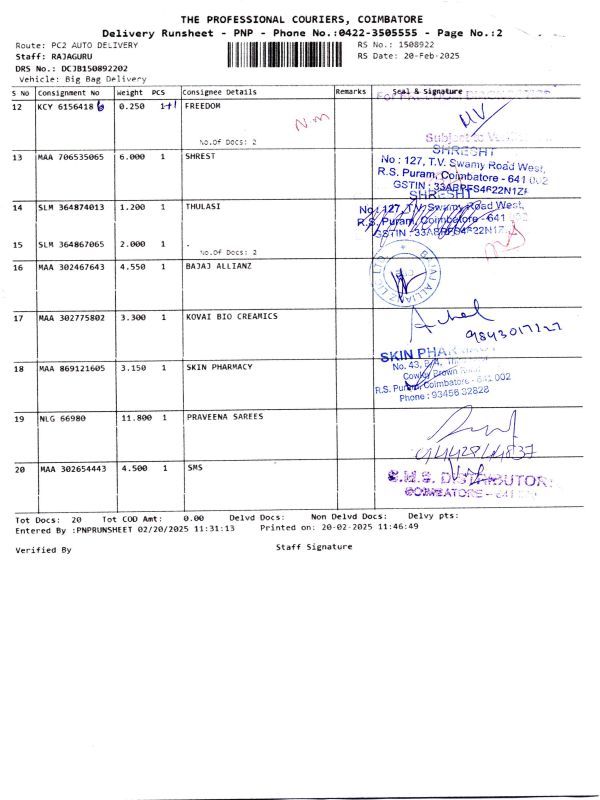 THE PROFESSIONAL COURIERS, COIMBATORE
Delivery Runsheet - PNP - Phone No.:0422-3505555 - Page No.:2
Route: PC2 AUTO DELIVERY
RS No.: 1508922
Staff: RAJAGURU
RS Date: 20-Feb-2025
DRS No.: DCJB150892202
Vehicle: Big Bag Delivery
S No Consignment No Weight PCS Consignee Details Remarks Seal & Signature
12 KCY 6156418 6 0.250 1+1 FREEDOM
No.Of Docs: 2
Subject to
13 MAA 706535065 6.000 1 SHREST
SHRESHT
No : 127, T.V. Swamy Road West,
R.S. Puram, Coimbatore - 641 002
GSTIN : 33ABPFS4F22N1Z
14 SLM 364874013 1.200 1 THULASI
SHRESHT
No : 127, T.V. Swamy Road West,
R.S. Puram, Coimbatore - 641 002
GSTIN : 33ABPFS4F22N1Z
15 SLM 364867065 2.000 1 .
No.Of Docs: 2
16 MAA 302467643 4.550 1 BAJAJ ALLIANZ
BAJAJ ALLIANZ
17 MAA 302775802 3.300 1 KOVAI BIO CREAMICS
9843017127
18 MAA 869121605 3.150 1 SKIN PHARMACY
SKIN PHAR
No. 43,
Cowley Brown Road
R.S. Puram, Coimbatore - 641 002
Phone : 93456 32828
19 NLG 66980 11.800 1 PRAVEENA SAREES
20 MAA 302654443 4.500 1 SMS
S.M.S. DISTRIBUTOR
COIMBATORE - 641
Tot Docs: 20 Tot COD Amt: 0.00 Delvd Docs: Non Delvd Docs: Delvy pts:
Entered By :PNPRUNSHEET 02/20/2025 11:31:13 Printed on: 20-02-2025 11:46:49
Verified By Staff Signature